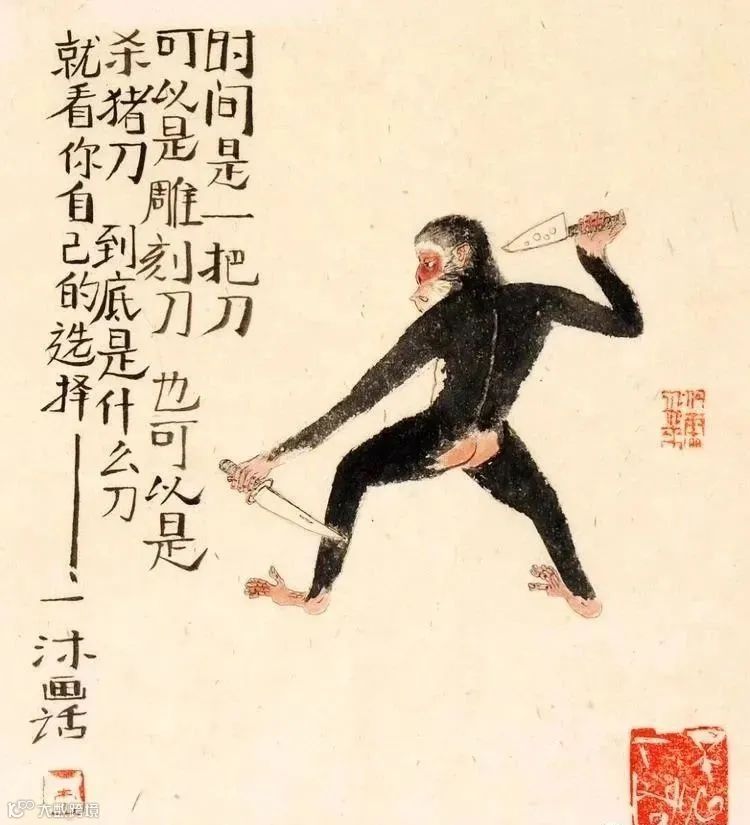 时间是一把刀
可以是雕刻刀 也可以是
杀猪刀 到底是什么刀
就看你自己的选择——
一沐画话
大数跨境